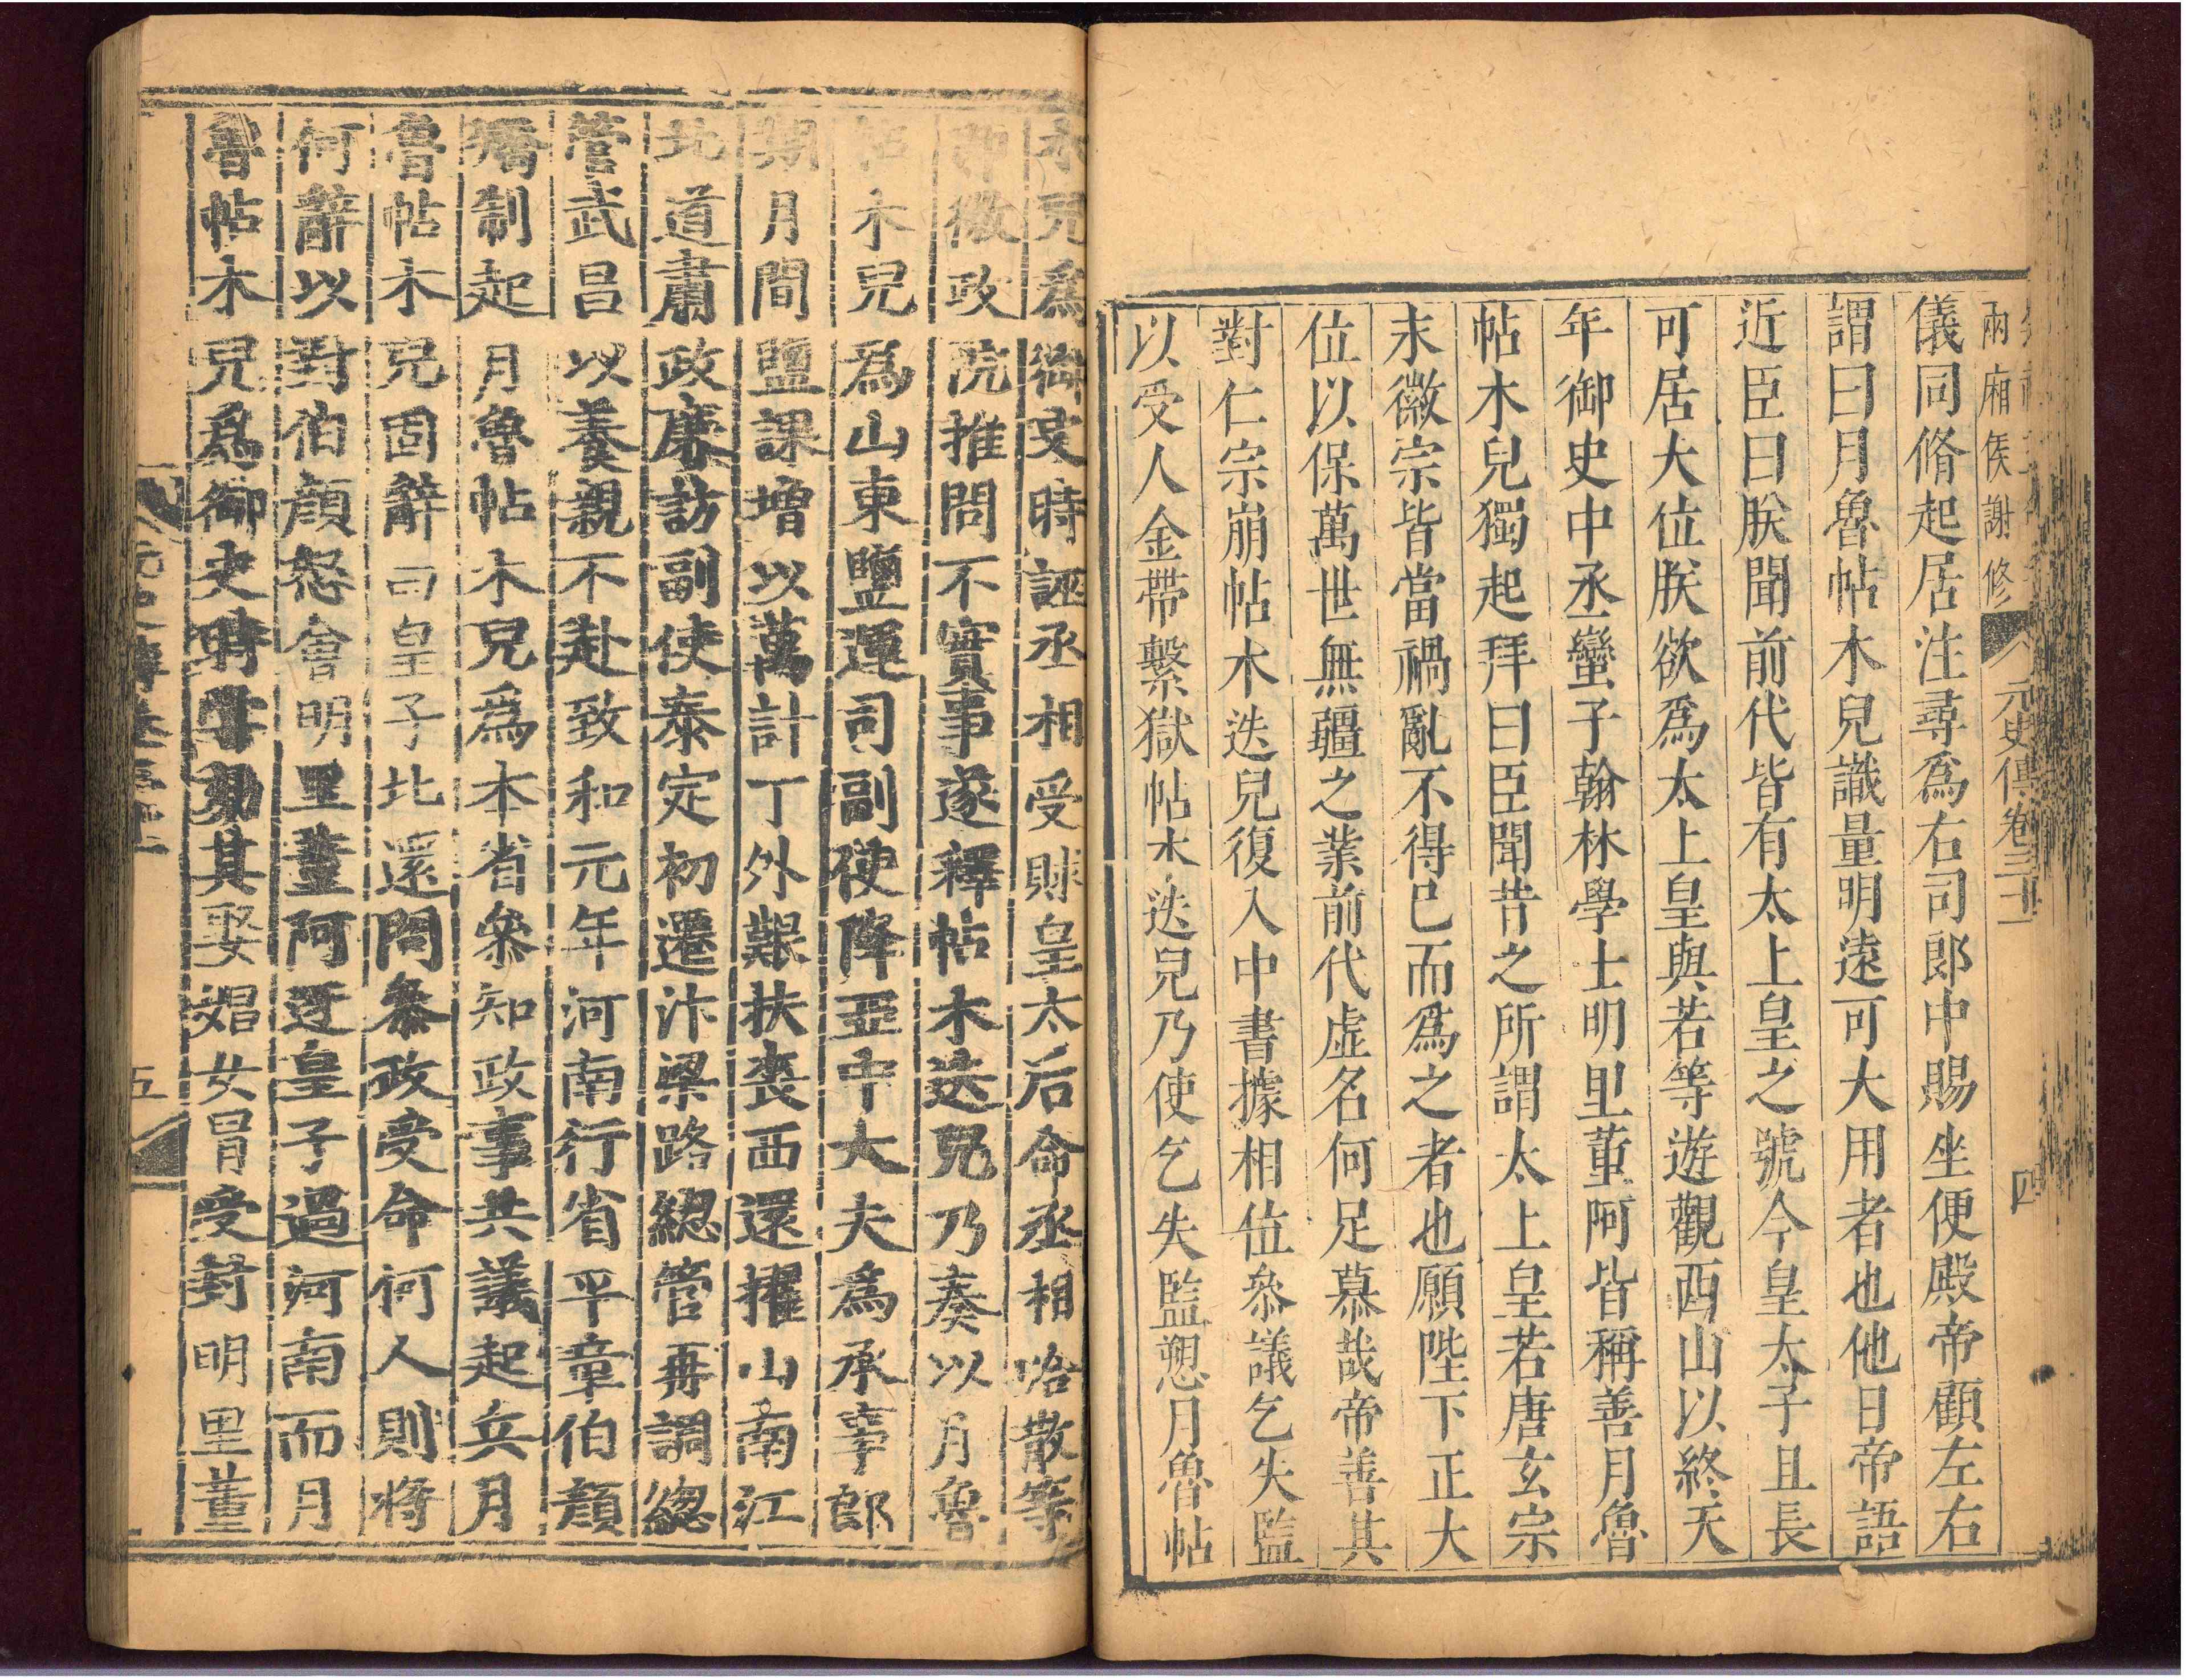 兩廂侯謝修
元史傳卷三十一
四
儀同脩起居注尋爲右司郎中賜坐便殿帝顧左右
謂曰月魯帖木兒識量明遠可大用者也他日帝語
近臣曰朕聞前代皆有太上皇之號今皇太子且長
可居大位朕欲爲太上皇與若等遊觀西山以終天
年御史中丞蠻子翰林學士明里董阿皆稱善月魯
帖木兒獨起拜曰臣聞昔之所謂太上皇若唐玄宗
末徽宗皆當禍亂不得已而爲之者也願陛下正大
位以保萬世無疆之業前代虛名何足慕哉帝善其
對仁宗崩帖木迭兒復入中書據相位叅議乞失監
以受人金帶繫獄帖木迭兒乃使乞失監愬月魯帖
木兒爲御史時誣丞相受賕皇太后命丞相哈散等
即徽政院推問不實事遂釋帖木迭兒乃奏以月魯
帖木兒爲山東鹽運司副使降亞中大夫爲承事郎
期月間鹽課增以萬計丁外艱扶喪西還擢山南江
北道肅政廉訪副使泰定初遷汴梁路總管再調總
管武昌以養親不赴致和元年河南行省平章伯顏
矯制起月魯帖木兒爲本省叅知政事共議起兵月
魯帖木兒固辭曰皇子北還問叅政受命何人則將
何辭以對伯顏怒會明里董阿迓皇子過河南而月
魯帖木兒爲御史時甞劾其娶娼女冒受封明里董
五